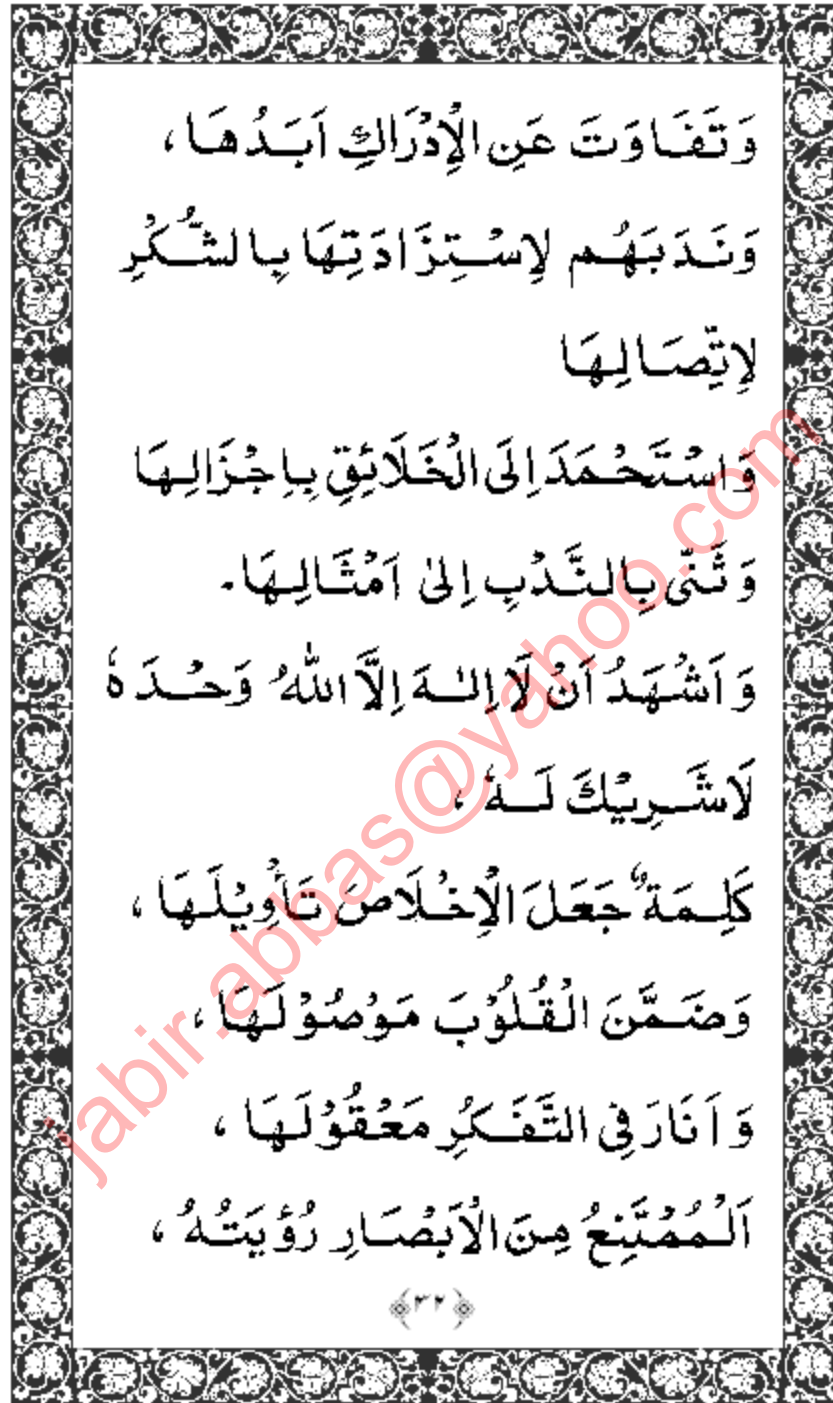 وَتَفَاوَتَ عَنِ الْإِدْرَاكِ اَبَدُهَا،
وَنَدَبَهُم لِاسْتِزَادَتِهَا بِالشُّكْرِ
لِاتِّصَالِهَا
وَاسْتَحْمَدَ اِلَى الْخَلَائِقِ بِاِجْزَالِهَا
وَثَنّٰى بِالنَّدْبِ اِلىٰ اَمْثَالِهَا۔
وَاَشْهَدُ اَنْ لَا اِلٰهَ اِلَّا اللهُ وَحْدَهٗ
لَاشَرِيْكَ لَهٗ،
كَلِمَةٌ جَعَلَ الْاِخْلَاصَ تَأْوِيْلَهَا،
وَضَمَّنَ الْقُلُوْبَ مَوْصُوْلَهَا،
وَاَنَارَ فِى التَّفَكُرِ مَعْقُوْلَهَا،
اَلْمُمْتَنِعُ مِنَ الْاَبْصَارِ رُؤْيَتُهُ،
﴿۳۲﴾
jabir.abbas@yahoo.com